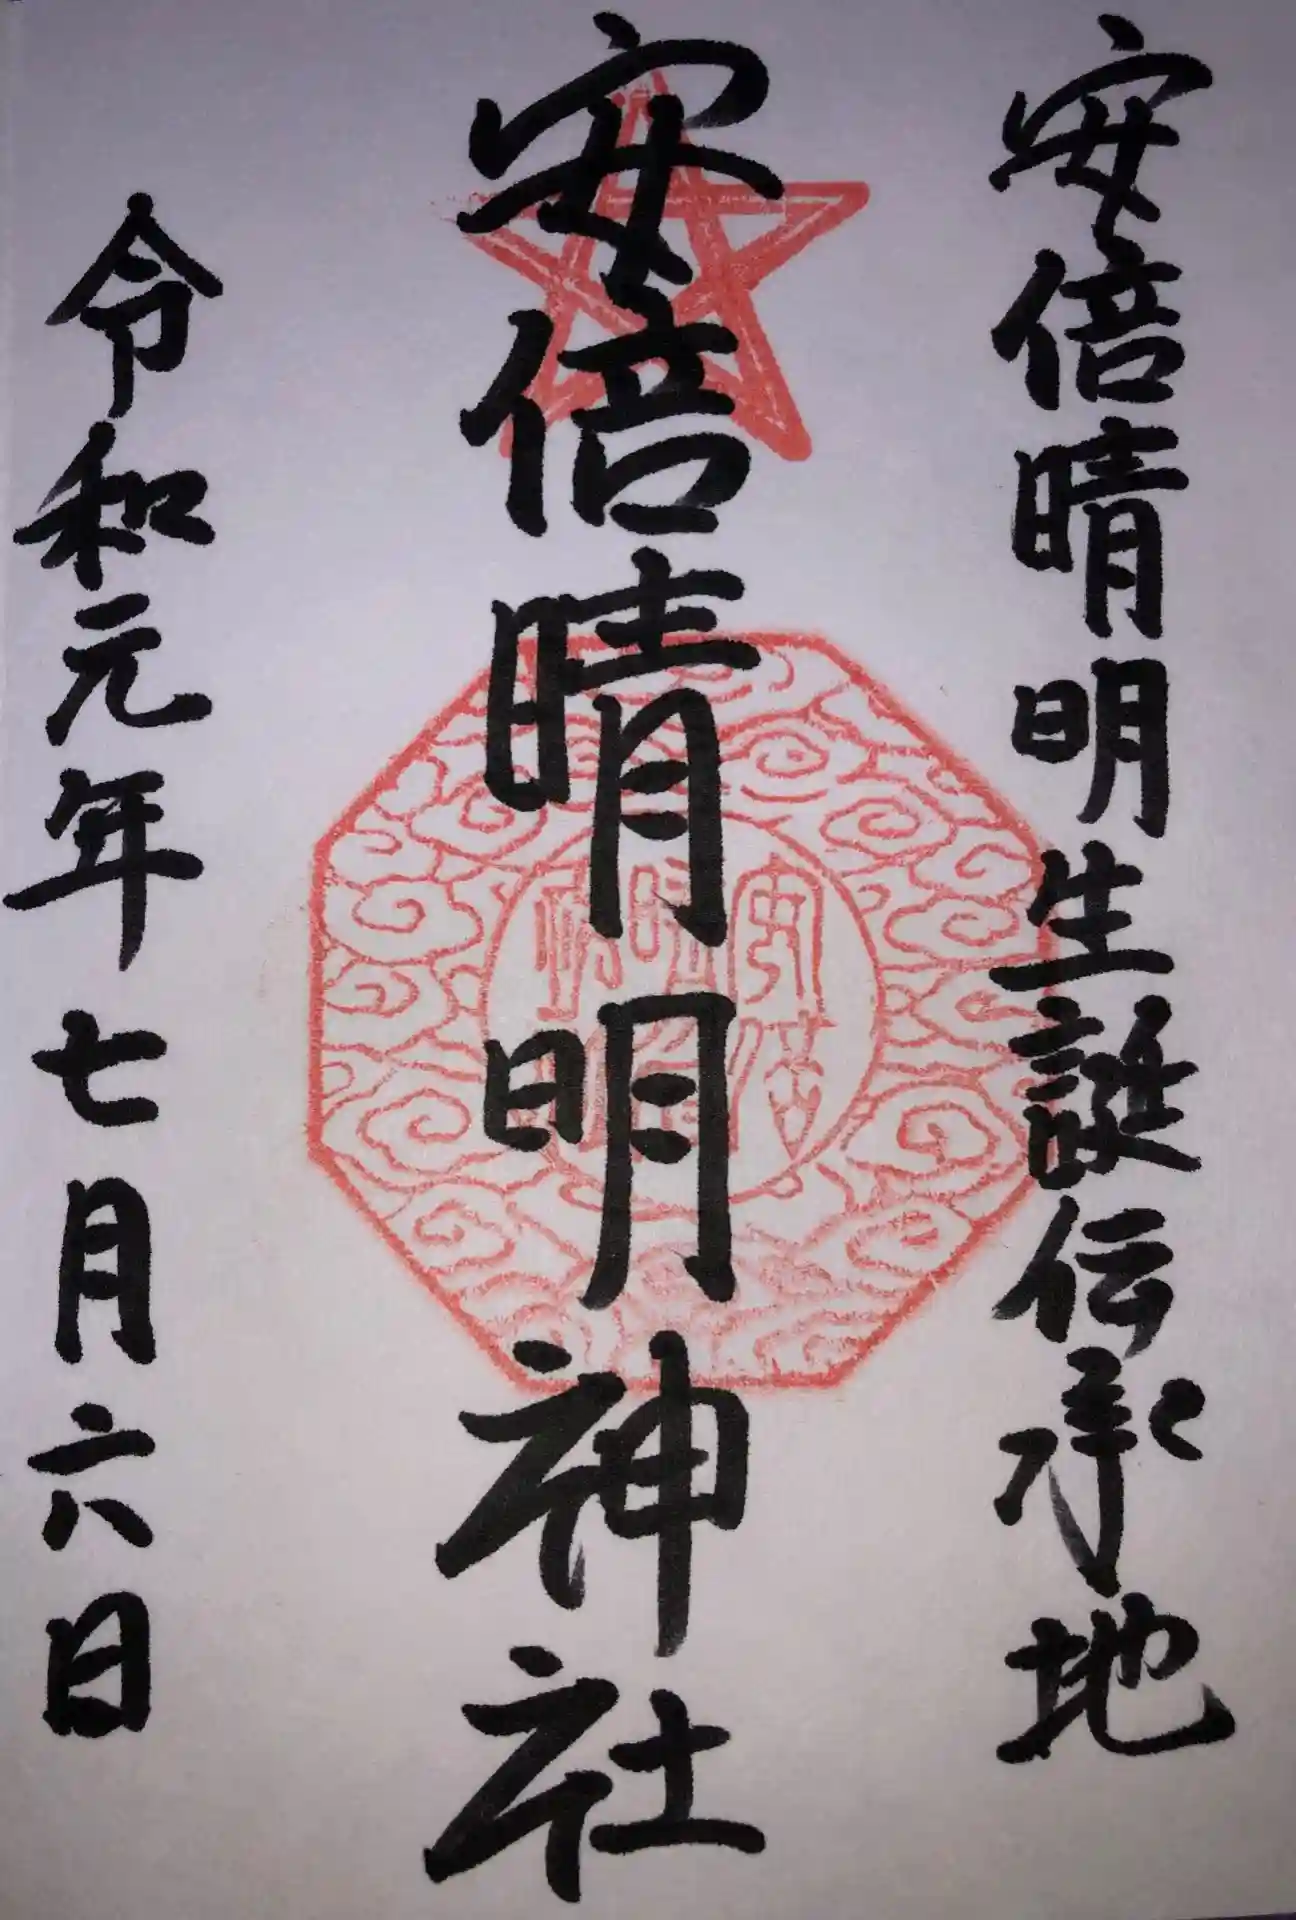 安倍晴明生誕伝承地
安倍晴明神社
令和元年七月六日